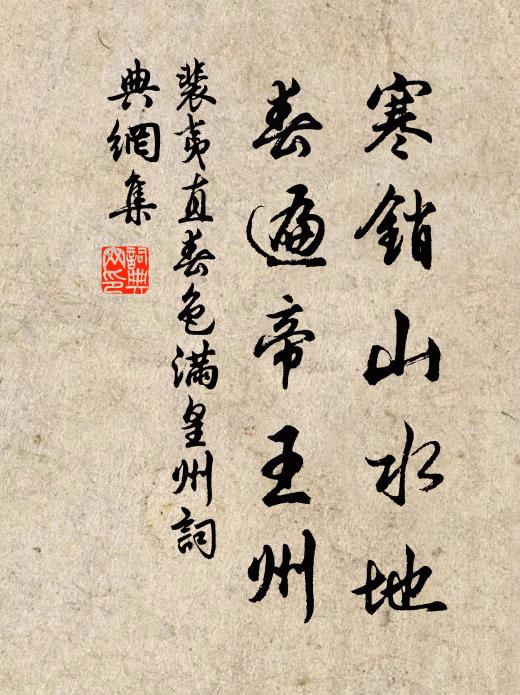 寒銷山水地
春遍帝王州
裴夷直春色滿皇州詞
典網集
詞典